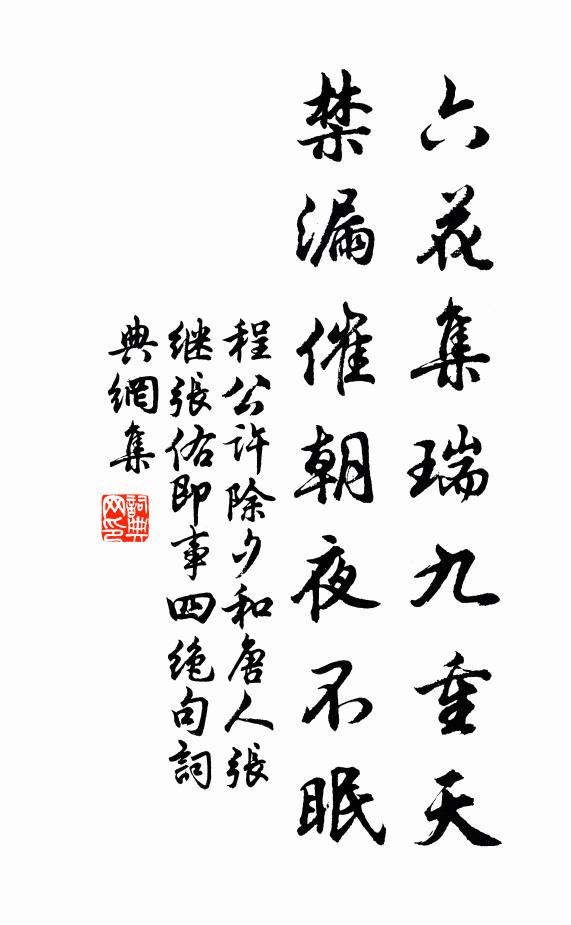 六花集瑞九重天
禁漏催朝夜不眠
程公许除夕和唐人张
继张佑即事四绝句詞
典網集
詞典网印